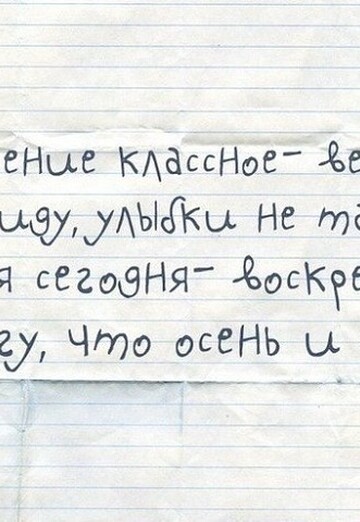 ение классное- ве
иду, улыбки не та
я сегодня- воскре
гу, что осень и